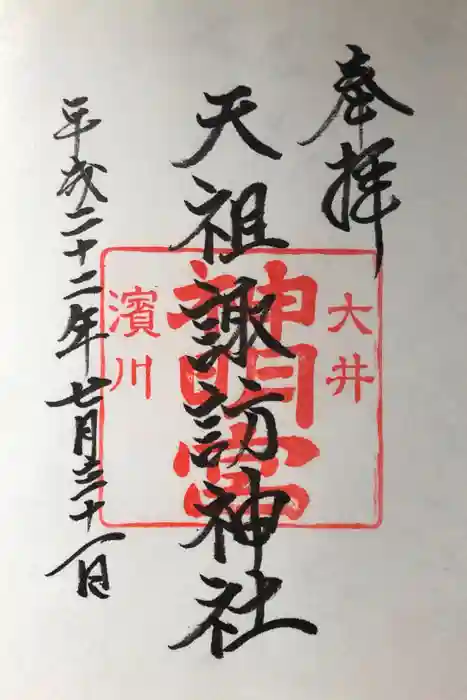 奉拝
天祖諏訪神社
平成二十二年七月三十一日
大井
神明宮
濱川